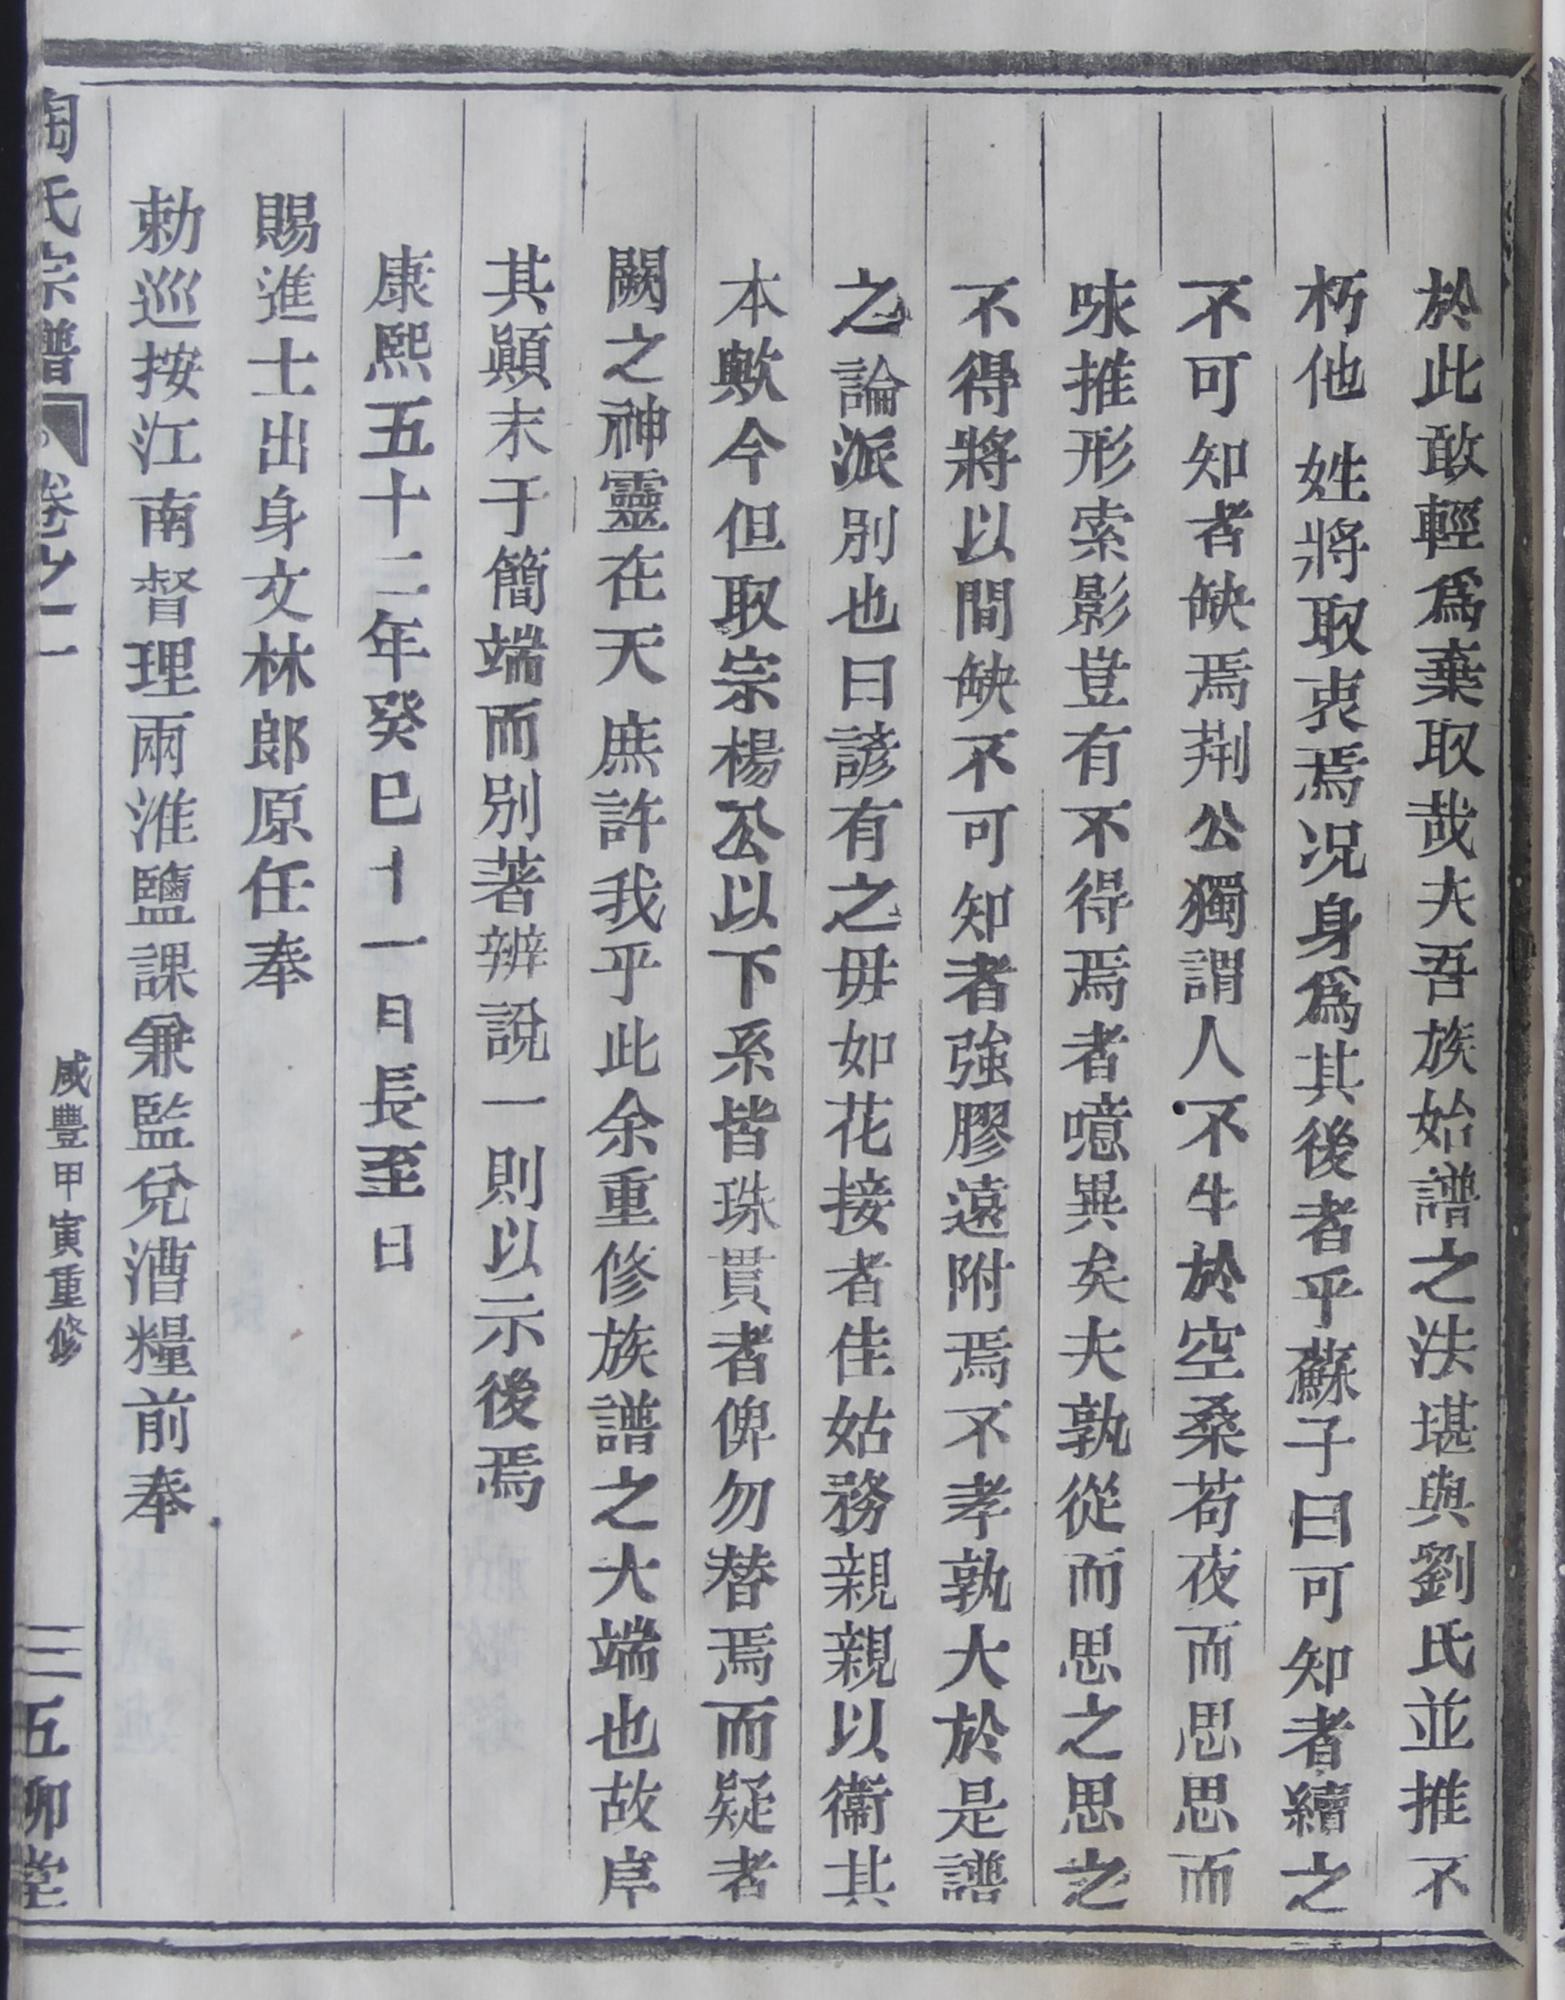 於此敢輕爲棄取哉夫吾族始譜之法堪與劉氏並推不
朽他姓將取衷焉况身爲其後者乎蘇子曰可知者續之
不可知者缺焉荆公獨謂人不生於空桑苟夜而思思而
味推形索影豈有不得焉者噫異矣夫孰從而思之思之
不得將以間缺不可知者強膠遠附焉不孝孰大於是譜
之論派別也曰諺有之毋如花接者佳姑務親親以衞其
本歟今但取宗楊公以下系皆珠貫者俾勿替焉而疑者
闕之神靈在天庶許我乎此余重修族譜之大端也故序
其顚末于簡端而別著辨說一則以示後焉
康熙五十二年癸巳十一月長至日
賜進士出身文林郎原任奉
勅巡按江南督理兩淮鹽課兼監兌漕糧前奉
陶氏宗譜 卷之一 咸豐甲寅重修 三 五柳堂